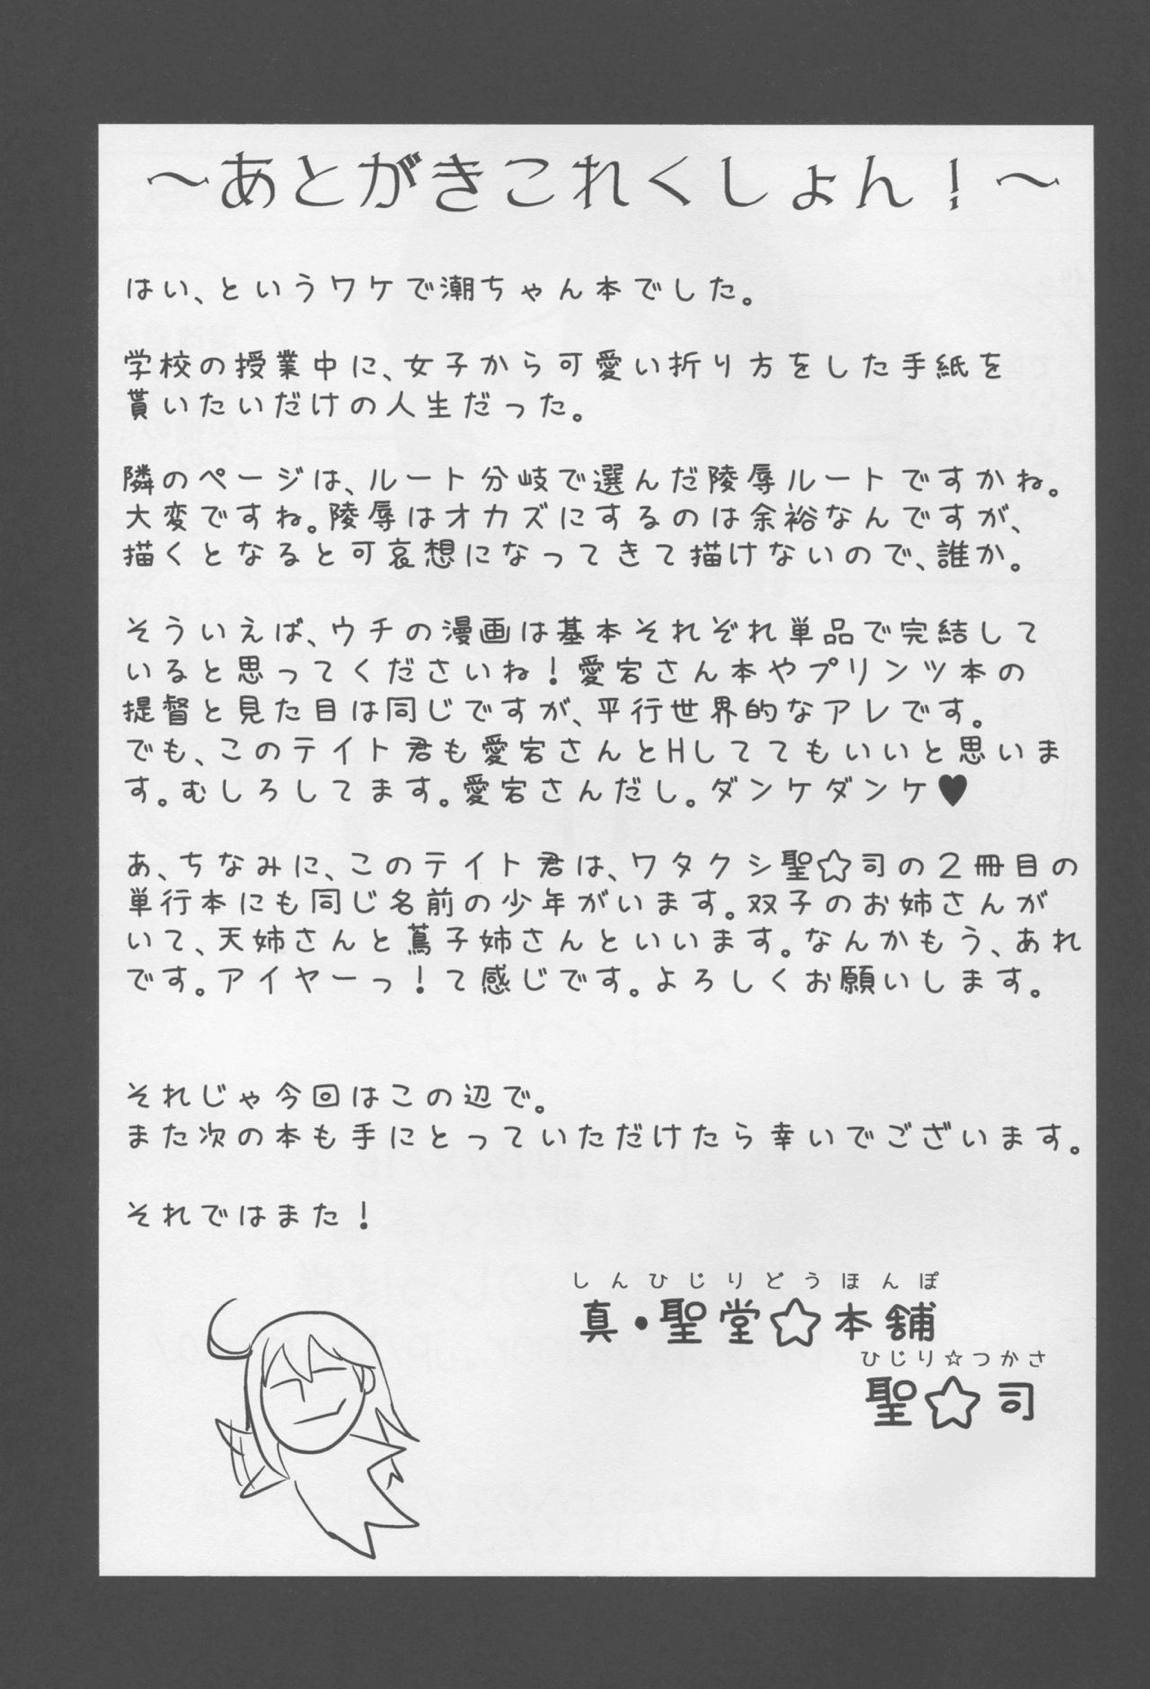 ～あとがきこれくしょん！～
はい、というワケで潮ちゃん本でした。
学校の授業中に、女子から可愛い折り方をした手紙を
貰いたいだけの人生だった。
隣のページは、ルート分岐で選んだ陵辱ルートですかね。
大変ですね。陵辱はオカズにするのは余裕なんですが、
描くとなると可哀想になってきて描けないので、誰か。
そういえば、ウチの漫画は基本それぞれ単品で完結して
いると思ってくださいね！愛宕さん本やプリンツ本の
提督と見た目は同じですが、平行世界的なアレです。
でも、このテイト君も愛宕さんとHしててもいいと思いま
す。むしろしてます。愛宕さんだし。ダンケダンケ♥
あ、ちなみに、このテイト君は、ワタクシ聖☆司の２冊目の
単行本にも同じ名前の少年がいます。双子のお姉さんが
いて、天姉さんと蔦子姉さんといいます。なんかもう、あれ
です。アイヤーっ！て感じです。よろしくお願いします。
それじゃ今回はこの辺で。
また次の本も手にとっていただけたら幸いでございます。
それではまた！
しんひじりどうほんぽ
真・聖堂☆本舗
ひじり☆つかさ
聖☆司